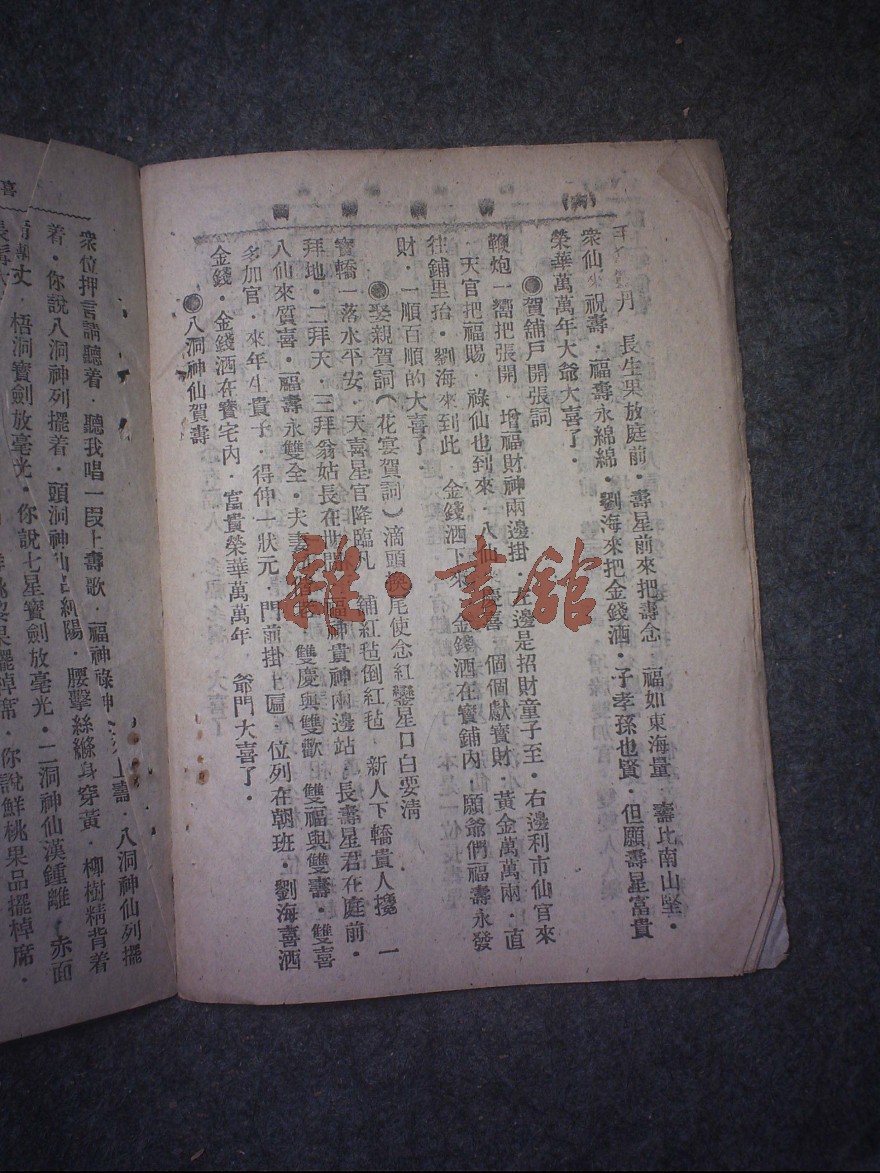 丹　長生果放庭前．壽星前來把壽念　福如東海量　壽比南山堅．
衆仙來祝壽．福壽永綿綿．劉海來把金錢洒．子孝孫也賢．但願壽星富貴
榮華萬萬年大爺大喜了．
◉賀舖戶開張詞
鞭炮一響把張開．增福財神兩邊掛　左邊是招財童子至．右邊利市仙官來
．天官把福賜．祿仙也到來．八仙　喜　個個獻寶財．黃金萬萬兩．直
往鋪里抬．劉海來到此　金錢洒下來　金錢洒在寶鋪內．願爺們福壽永發
財．一順百順的大喜了．
◉娶親賀詞（花宴賀詞）滴頭換尾使念紅鑾星口白要清
寶轎一落水平安．天喜星官降臨凡　鋪紅毡倒紅毡．新人下轎貴人攙　一
拜地．二拜天．三拜翁姑長在世間　福神貴神兩邊站　長壽星君在庭前．
八仙來賀喜．福壽永雙全．夫妻　雙慶與雙歡　雙福與雙壽．雙喜
多加官．來年生貴子．得仲一狀元　門前掛上匾．位列在朝班．劉海喜洒
金錢．金錢洒在寶宅內．富貴榮華萬萬年．爺門大喜了．
◉八洞神仙賀壽
衆位押言請聽着．聽我唱一段上壽歌．福神祿神　上壽．八洞神仙列擺
着．你說八洞神列擺着．頭洞神仙呂純陽．腰繫絲縧身穿黃．柳樹精背着
　梧洞寶劍放毫光．你說七星寶劍放毫光．二洞神仙漢鍾離．赤面
鮮桃　果擺棹席．你說鮮桃果品擺棹席．
雜·書館